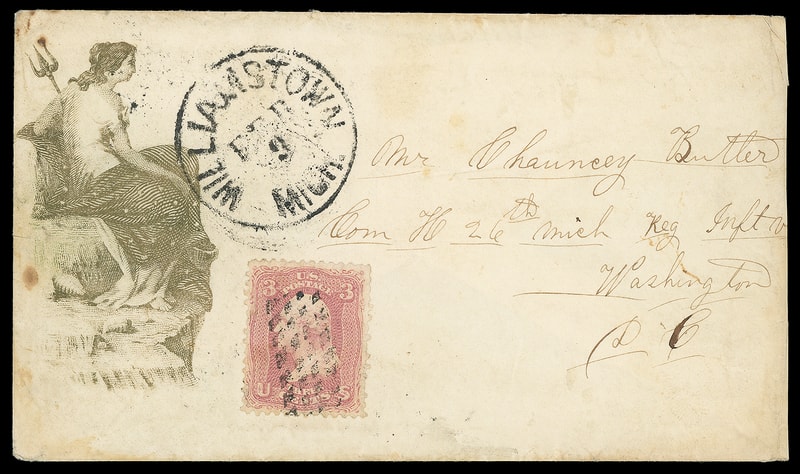 WILLIAMSTOWN
FEB
9
MICH.
Mr Chauncey Butler
Com H 26th mich Reg Inft v
Washington
D C
U.S.
POSTAGE
3 3
U S
CENTS